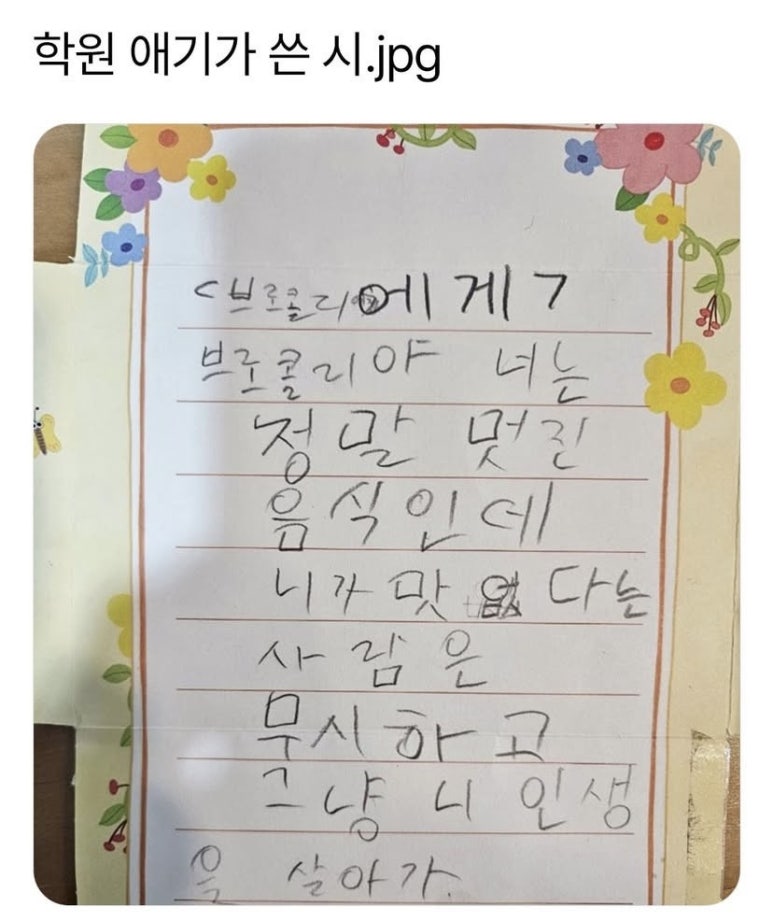 학원 애기가 쓴 시.jpg
<브로콜리에게7
브로콜리야 너는
정말 멋진
음식인데
니가 맛 없다는
사람은
무시하고
그냥 니 인생
을 살아가.